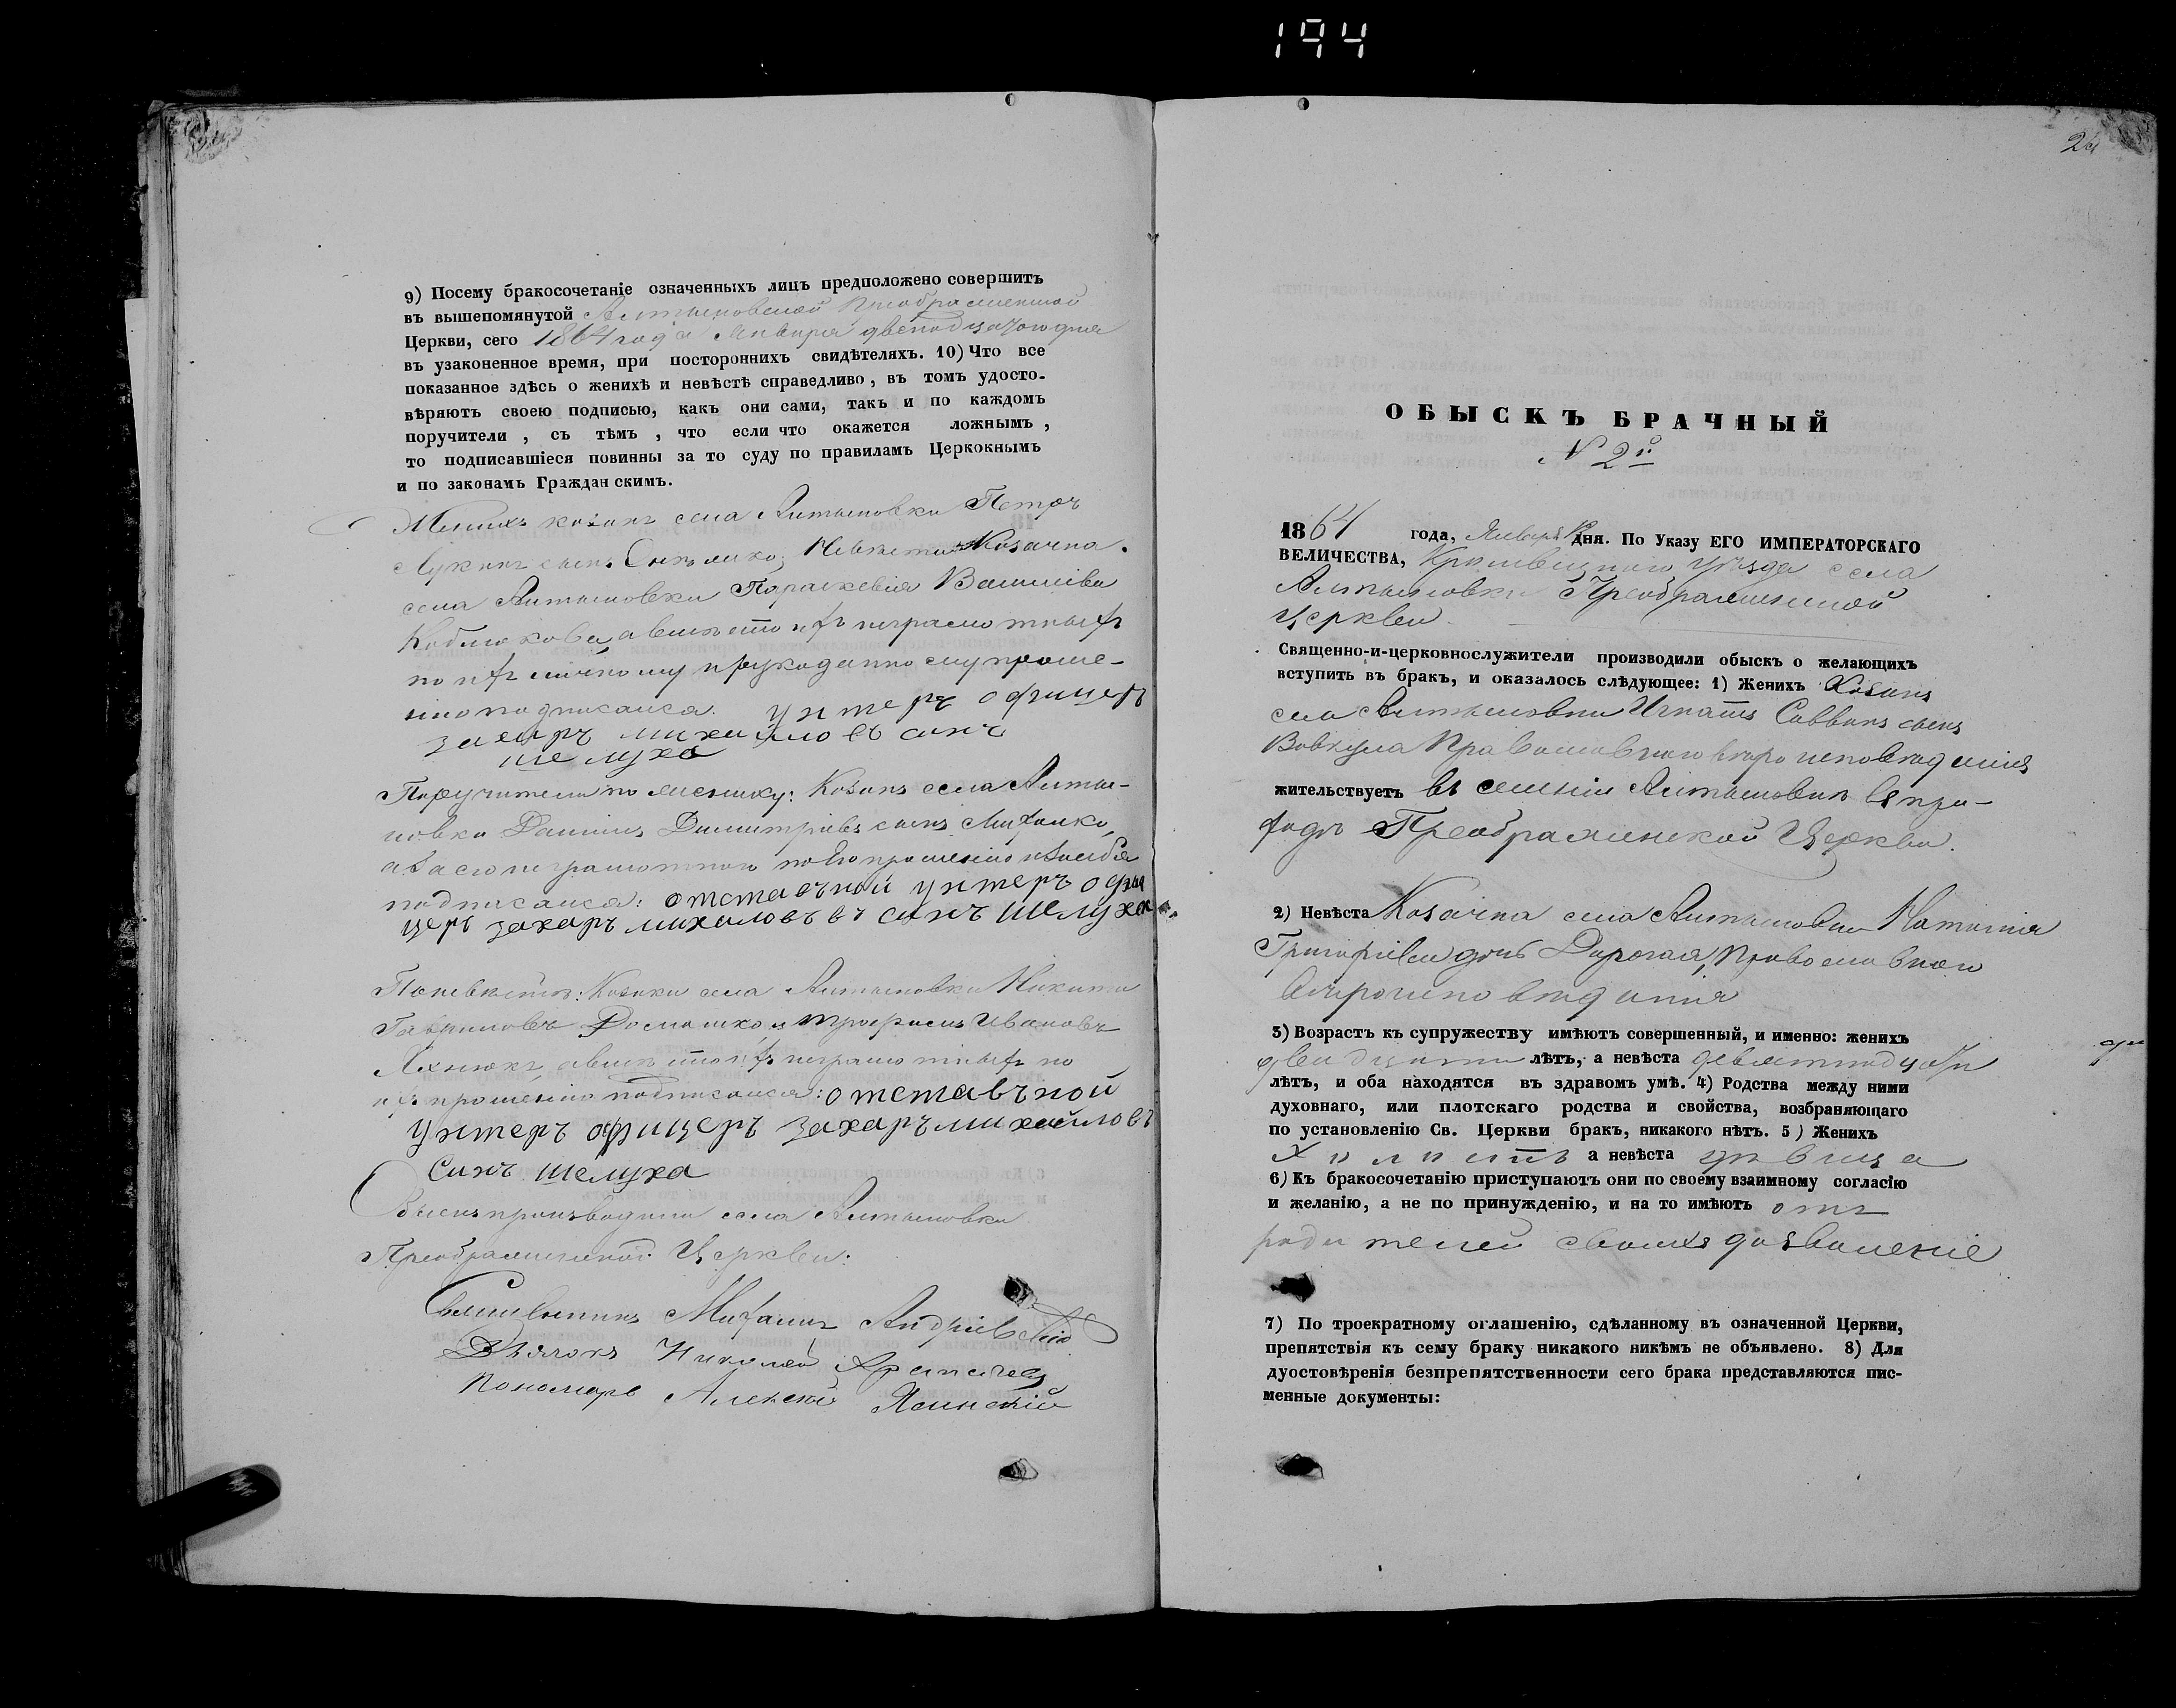 194
9) Посему бракосочетаніе означенныхъ лицъ предположено совершить
въ вышепомянутой Алтыновской Преображенской
Церкви, сего 1864 года Января двенадцатого дня
въ узаконенное время, при постороннихъ свидѣтеляхъ. 10) Что все
показанное здѣсь о женихѣ и невѣстѣ справедливо, въ томъ удосто-
вѣряютъ своею подписью, какъ они сами, такъ и по каждомъ
поручители, съ тѣмъ, что если что окажется ложнымъ,
то подписавшіеся повинны за то суду по правиламъ Церкокнымъ
и по законамъ Гражданскимъ.
Женихъ козакъ села Алтыновки Петръ
Лукинъ сынъ Невѣста Козачка
села Алтыновки Параскевія
неграмотныхъ
по ихъ личному
нію подписался: унтеръ офицеръ
захаръ михайловъ синъ
шелуха
Поручители по женику: Козакъ села Алты-
новки Даніилъ Димитріевъ сынъ Михалко,
а за его неграмотного по его прошенію и за себя
подписался: отставъной унтеръ офи
церъ захаръ михаловъ синъ шелуха
По невѣстѣ: Козаки села Алтыновки Никита
Гавриловъ Домашко и Трофимъ Ивановъ
неграмотныхъ по
ихъ прошенію подписался: отставъной
унтеръ офицеръ захаръ михайловъ
синъ шелуха
производили села Алтыновки
Преображенской Церкви:
Священникъ Михаилъ Андріевскій
Дьячокъ Николай
Пономарь Алексѣй Ясинскій
ОБЫСКЪ БРАЧНЫЙ
N 2й
1864 года, Января дня. По Указу ЕГО ИМПЕРАТОРСКАГО
ВЕЛИЧЕСТВА, Кролевецкого уѣзда села
Алтыновки Преображенской
Церкви.
Священно-и-церковнослужители производили обыскъ о желающихъ
вступить въ бракъ, и оказалось слѣдующее: 1) Женихъ Козакъ
села Алтыновки Игнатъ Саввинъ сынъ
Вовкула Православного вѣроисповѣданія
жительствуетъ въ селеніи Алтыновкѣ въ при-
ходѣ Преображенской Церкви.
2) Невѣста Козачка села Алтыновки Наталія
Григоріева дочь Дорогая, Православного
вѣроисповѣданія
3) Возрастъ къ супружеству имѣютъ совершенный, и именно: женихъ
двадцати лѣтъ, а невѣста девятнадцати
лѣтъ, и оба находятся въ здравомъ умѣ. 4) Родства между ними
духовнаго, или плотскаго родства и свойства, возбраняющаго
по установленію Св. Церкви бракъ, никакого нѣтъ. 5) Женихъ
Холостъ а невѣста дѣвица
6) Къ бракосочетанію приступаютъ они по своему взаимному согласію
и желанію, а не по принужденію, и на то имѣютъ отъ
родителей своихъ дозволеніе
7) По троекратному оглашенію, сдѣланному въ означенной Церкви,
препятствія къ сему браку никакого никѣмъ не объявлено. 8) Для
дуостовѣренія безпрепятственности сего брака представляются пис-
менные документы: